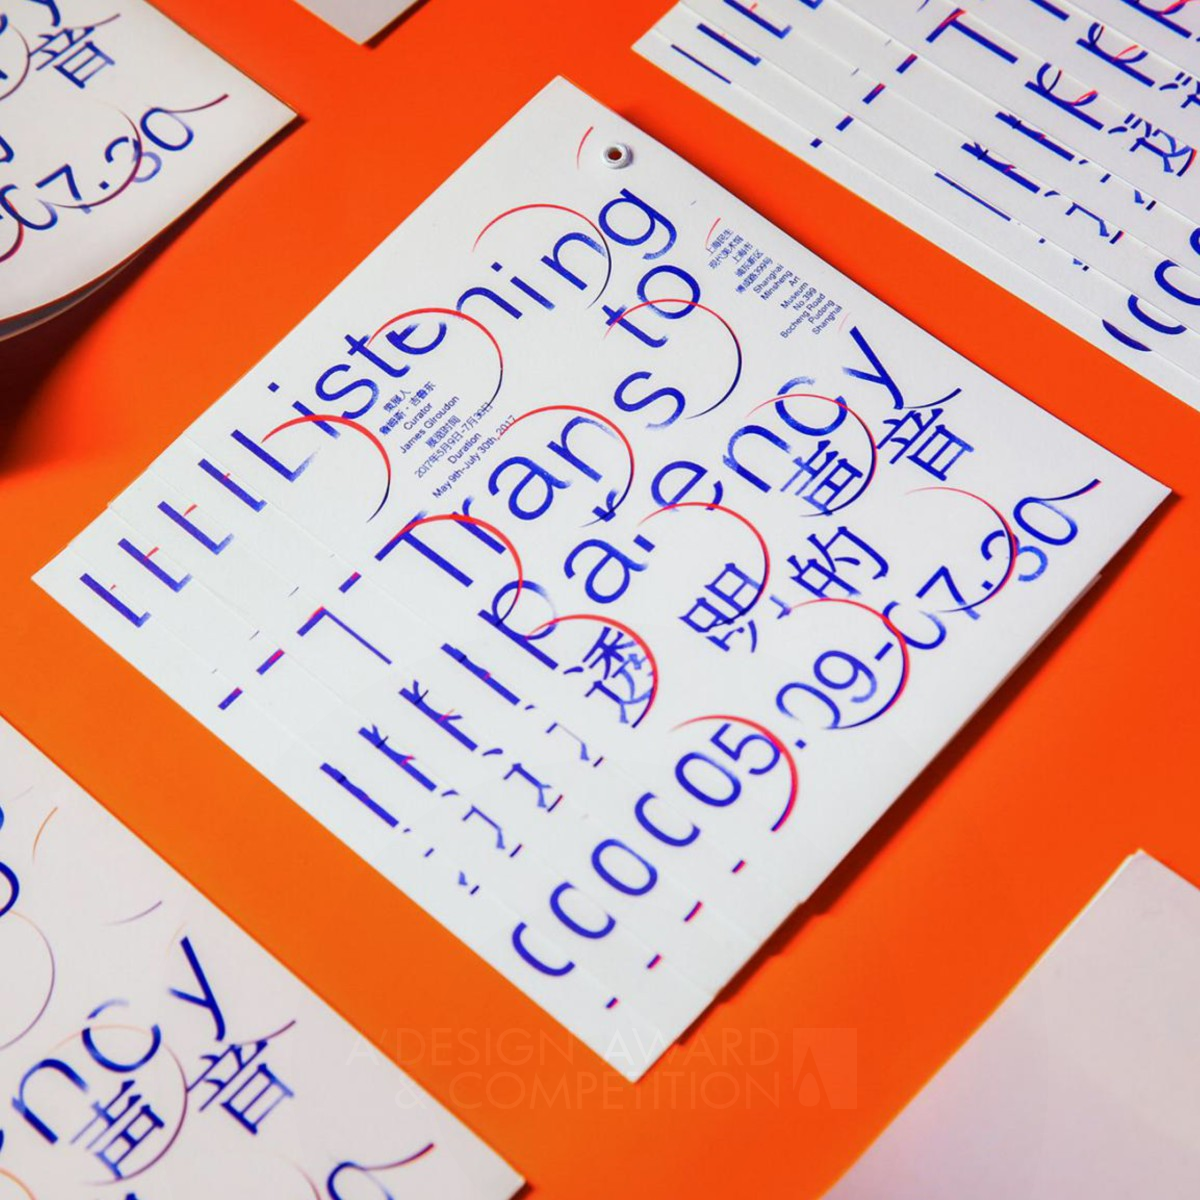 Listening
to
Trans
parency
透明的
声音
05.09-07.30
策展人
詹姆斯·吉鲁东
Curator
James Giroudon
展览时间
2017年5月9日-7月30日
Duration
May 9th-July 30th, 2017
上海民生
现代美术馆
上海市
浦东新区
博成路399号
Shanghai
Minsheng
Art
Museum
No.399
Bocheng Road
Pudong
Shanghai
ency
声音
音
07.30
A'DESIGN AWARD
& COMPETITION